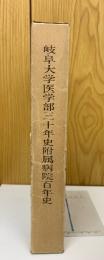 岐阜大学医学部三十年史附属病院百年史